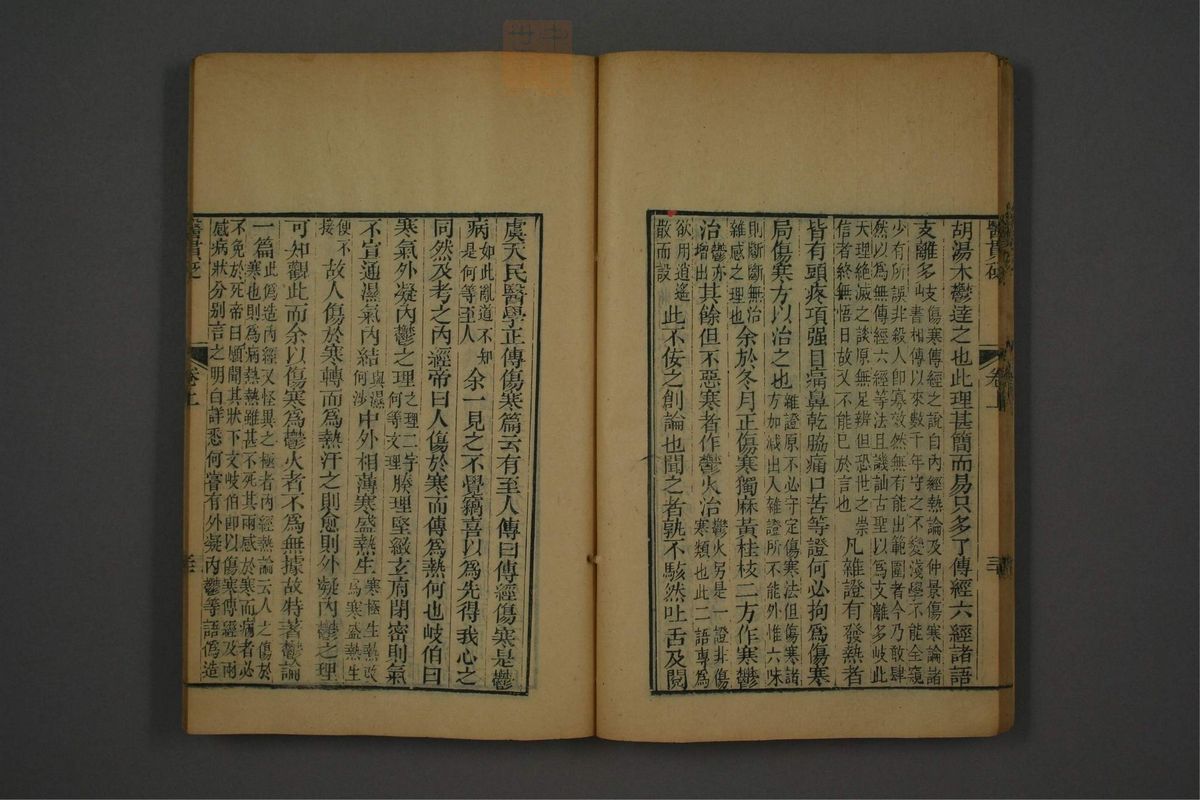 胡湯木鬱達之也此理甚簡而易只多了傳經六經諸語
支離多岐傷寒傳經之說自內經熱論及仲景傷寒論諸
書相傳以來數千年守之不變淺學不能全窺
少有所誤非殺人即寡效然無有能出範圍者今乃敢肆
然以為無傳經六經等法且譏訕古聖以為支離多岐此
天理絕滅之談原無足辨但恐世之崇
信者終無悟日故又不能已於言也凡雜證有發熱者
皆有頭疼項强目痛鼻乾脇痛口苦等證何必拘爲傷寒
局傷寒方以治之也雜證原不必守定傷寒法但傷寒諸
方如減出入雜證所不能外惟六味
則斷斷無治
雜感之理也余於冬月正傷寒獨麻黃桂枝二方作寒鬱
治鬱亦
增出其餘但不惡寒者作鬱火治鬱火另是一證非傷
寒類也此二語專爲
欲用逍遙
散而設此不佞之創論也聞之者孰不駭然吐舌及閱
醫貫砭
卷上
虞天民醫學正傳傷寒篇云有至人傳曰傳經傷寒是鬱
病如此亂道不知
是何等至人余一見之不覺竊喜以爲先得我心之
同然及考之內經帝曰人傷於寒而傳爲熱何也岐伯曰
寒氣外凝內鬱之理之理二字
何等文理腠理堅緻玄府閉密則氣
不宣通濕氣內結與濕
何涉中外相薄寒盛熱生寒極生熱改
爲寒盛熱生
便不
接故人傷於寒轉而爲熱汗之則愈則外凝內鬱之理
可知觀此而余以傷寒爲鬱火者不爲無據故特著鬱論
一篇此僞造內經又怪異之極者內經熱論云人之傷於
寒也則爲病熱熱雖甚不死其兩感於寒而病者必
不免於死帝曰願聞其狀下文岐伯即以傷寒傳經及兩
感病狀分别言之明白詳悉何嘗有外凝內鬱等語僞造
醫貫砭
卷上